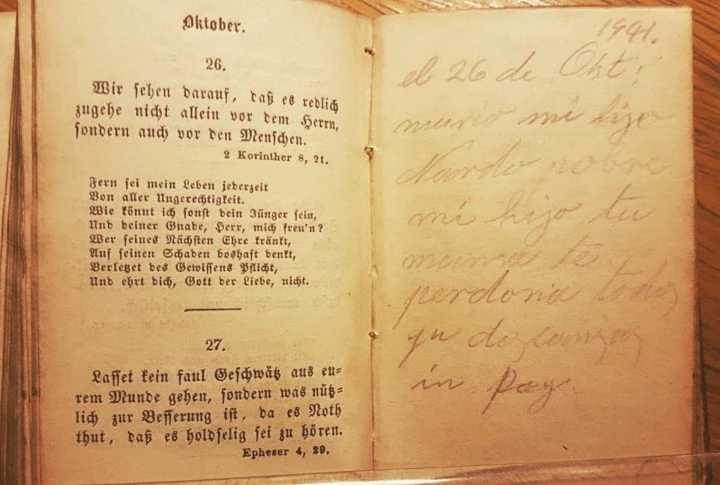 Oktober.
26.
Wir sehen darauf, daß es redlich
zugehe nicht allein vor dem Herrn,
sondern auch vor den Menschen.
2 Korinther 8, 21.
Fern sei mein Leben jederzeit
Von aller Ungerechtigkeit.
Wie könnt ich sonst dein Jünger sein,
Und deiner Gnade, Herr, mich freu'n?
Wer seines Nächsten Ehre kränkt,
Auf seinen Schaden boshaft denkt,
Verletzet des Gewissens Pflicht,
Und ehrt dich, Gott der Liebe, nicht.
27.
Lasset kein faul Geschwätz aus eu-
rem Munde gehen, sondern was nütz-
lich zur Besserung ist, da es Noth
thut, daß es holdselig sei zu hören.
Epheser 4, 29.
1941.
el 26 de Okt:
murio mi hijo
Nardo pobre
mi hijo tu
mama te
perdona todo
qu descansas
in Paz